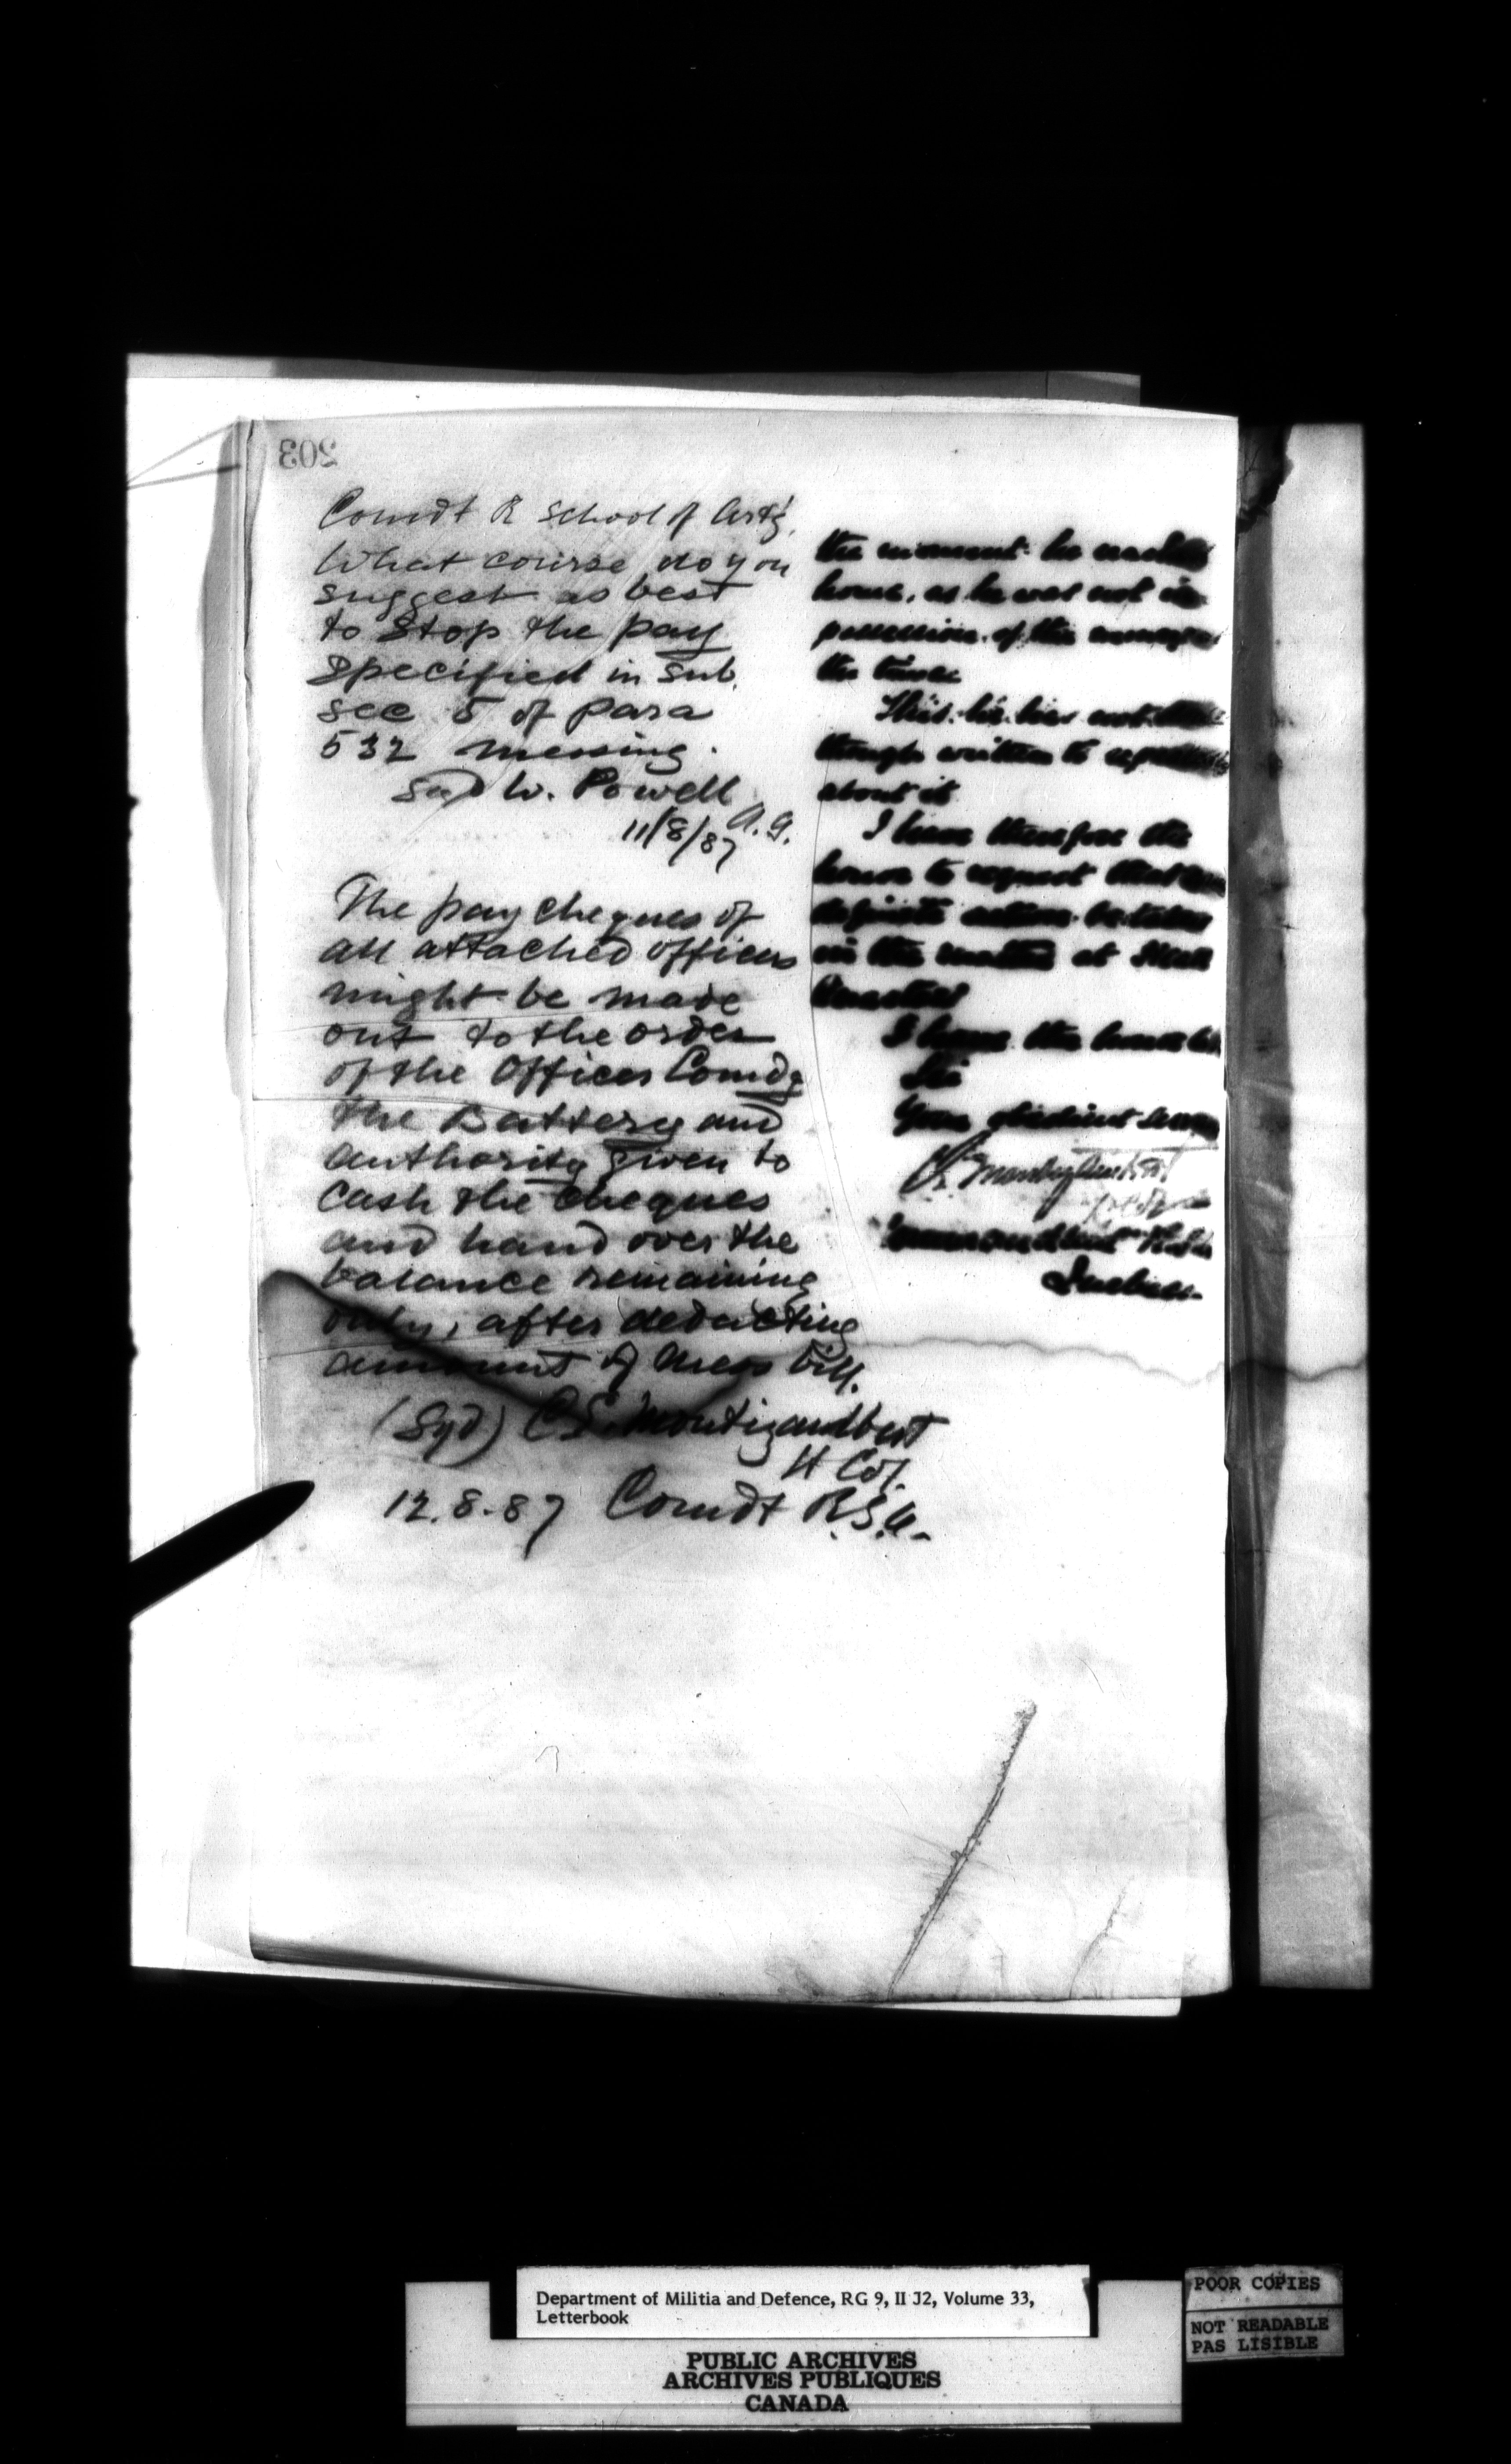 203
Comdt R School of Arty.
What course do you
suggest as best
to stop the pay
specified in sub.
sec 5 of para
532 messing.
Sgd W. Powell
A.G.
11/8/87
The pay cheques of
all attached officers
might be made
out to the order
of the Officer Comdg
the Battery and
authority given to
cash the cheques
and hand over the
balance remaining
only, after deducting
amount of Mess bill.
(Sgd) C.E. Montizambert
Lt Col.
12.8.87 Comdt R.S.A.
the moment he
home, as he was not in
possession of the money
the time
This he has not
though written to
about it
I have therefore the
honor to request that
definite action be taken
in the matter at Head
Quarters
I have the honor
Sir
Your obedient
Commandant
Quebec
Department of Militia and Defence, RG 9, II J2, Volume 33,
Letterbook
PUBLIC ARCHIVES
ARCHIVES PUBLIQUES
CANADA
POOR COPIES
NOT READABLE
PAS LISIBLE